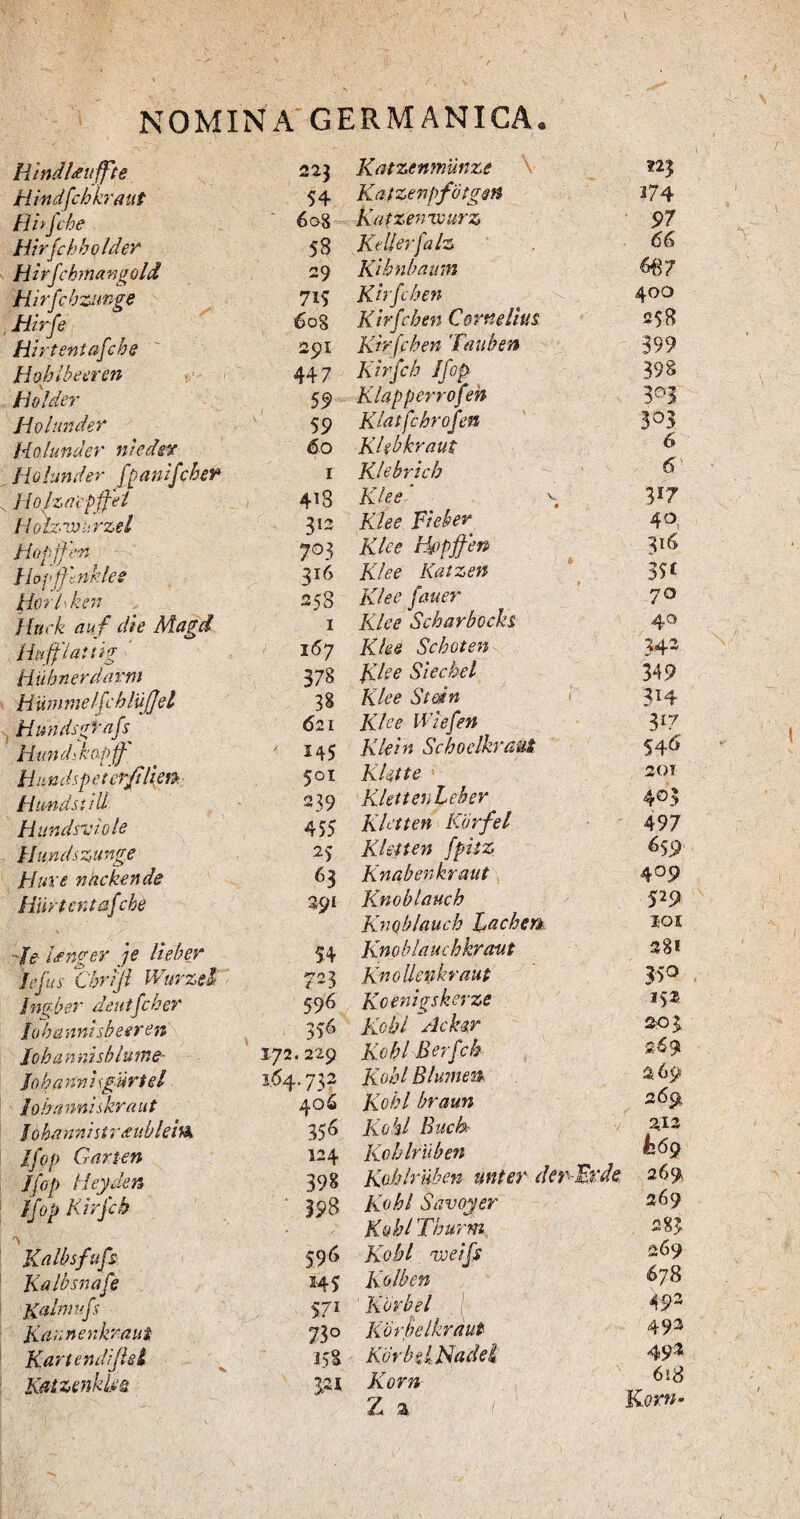 NOMINA GERMANICA.
Hindlæuffte 223
Hindſchkraut 54
Hirſche 608
Hirſchholder 58
Hirſchmangold 29
Hirſchzunge 715
Hirſe 608
Hirtentaſche 291
Hohlbeeren 447
Holder 59
Holunder 59
Holunder nieder 60
Holunder ſpaniſcher 1
Holzæpffel 418
Holzwurzel 312
Hopffen 703
Hopffenklee 316
Horlsken 258
Huck auf die Magd 1
Hufflattig 167
Hühnerdarm 378
Hümmelſchlüſſel 38
Hundsgraſs 621
Hundskopff 145
Hundspeterſilien 501
Hundstill 239
Hundsviole 455
Hundszunge 25
Hure nackende 63
Hürtentaſche 291
Je længer je lieber 54
Jeſus Chriſt Wurzel 723
Ingber deutſcher 596
Iohannisbeeren 356
Iohannisblume 172. 229
Iohannisgürtel 164. 732
Iohanniskraut 406
Iohannistræublein 356
Iſop Garten 124
Iſop Heyden 398
Iſop Kirſch 398
Kalbsfuſs 596
Kalbsnaſe 145
Kalmuſs 571
Kannenkraut 730
Kartendiſtel 158
Katzenklee 321
Katzenmünze 123
Katzenpfötgen 174
Katzenwurz 97
Kellerſalz 66
Kihnbaum 687
Kirſchen 400
Kirſchen Cornelius 258
Kirſchen Tauben 399
Kirſch Iſop 398
Klapperroſen 303
Klatſchroſen 303
Klebkraut 6
Klebrich 6
Klee 317
Klee Fieber 40
Klee Hopffen 316
Klee Katzen 351
Klee ſauer 70
Klee Scharbocks 40
Klee Schoten 342
Klee Siechel 349
Klee Stein 314
Klee Wieſen 317
Klein Schoelkraut 546
Klette 201
Kletten Leber 403
Kletten Körfel 497
Kletten ſpitz 659
Knabenkraut 409
Knoblauch 529
Knoblauch Lachen 101
Knoblauchkraut 281
Knollenkraut 350
Koenigskerze 152
Kohl Acker 203
Kohl Berſch 269
Kohl Blumen 269
Kohl braun 269
Kohl Buch 212
Kohlrüben 269
Kohlrüben unter der Erde 269
Kohl Savoyer 269
Kohl Thurm 283
Kohl weiſs 269
Kolben 678
Körbel 492
Körbelkraut 492
Körbel Nadel 492
Korn 618
Z 2
Korn-